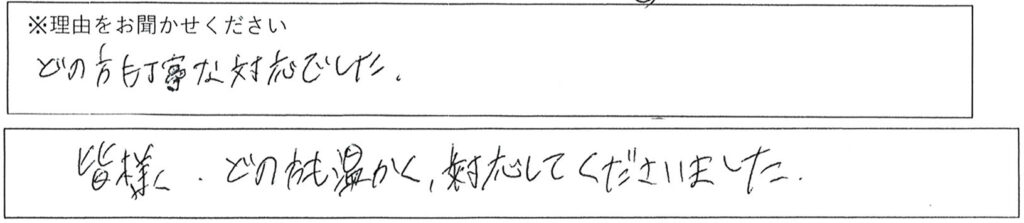 ※理由をお聞かせください
どの方も丁寧な対応でした.
皆様、どの方も温かく,対応してくださいました.